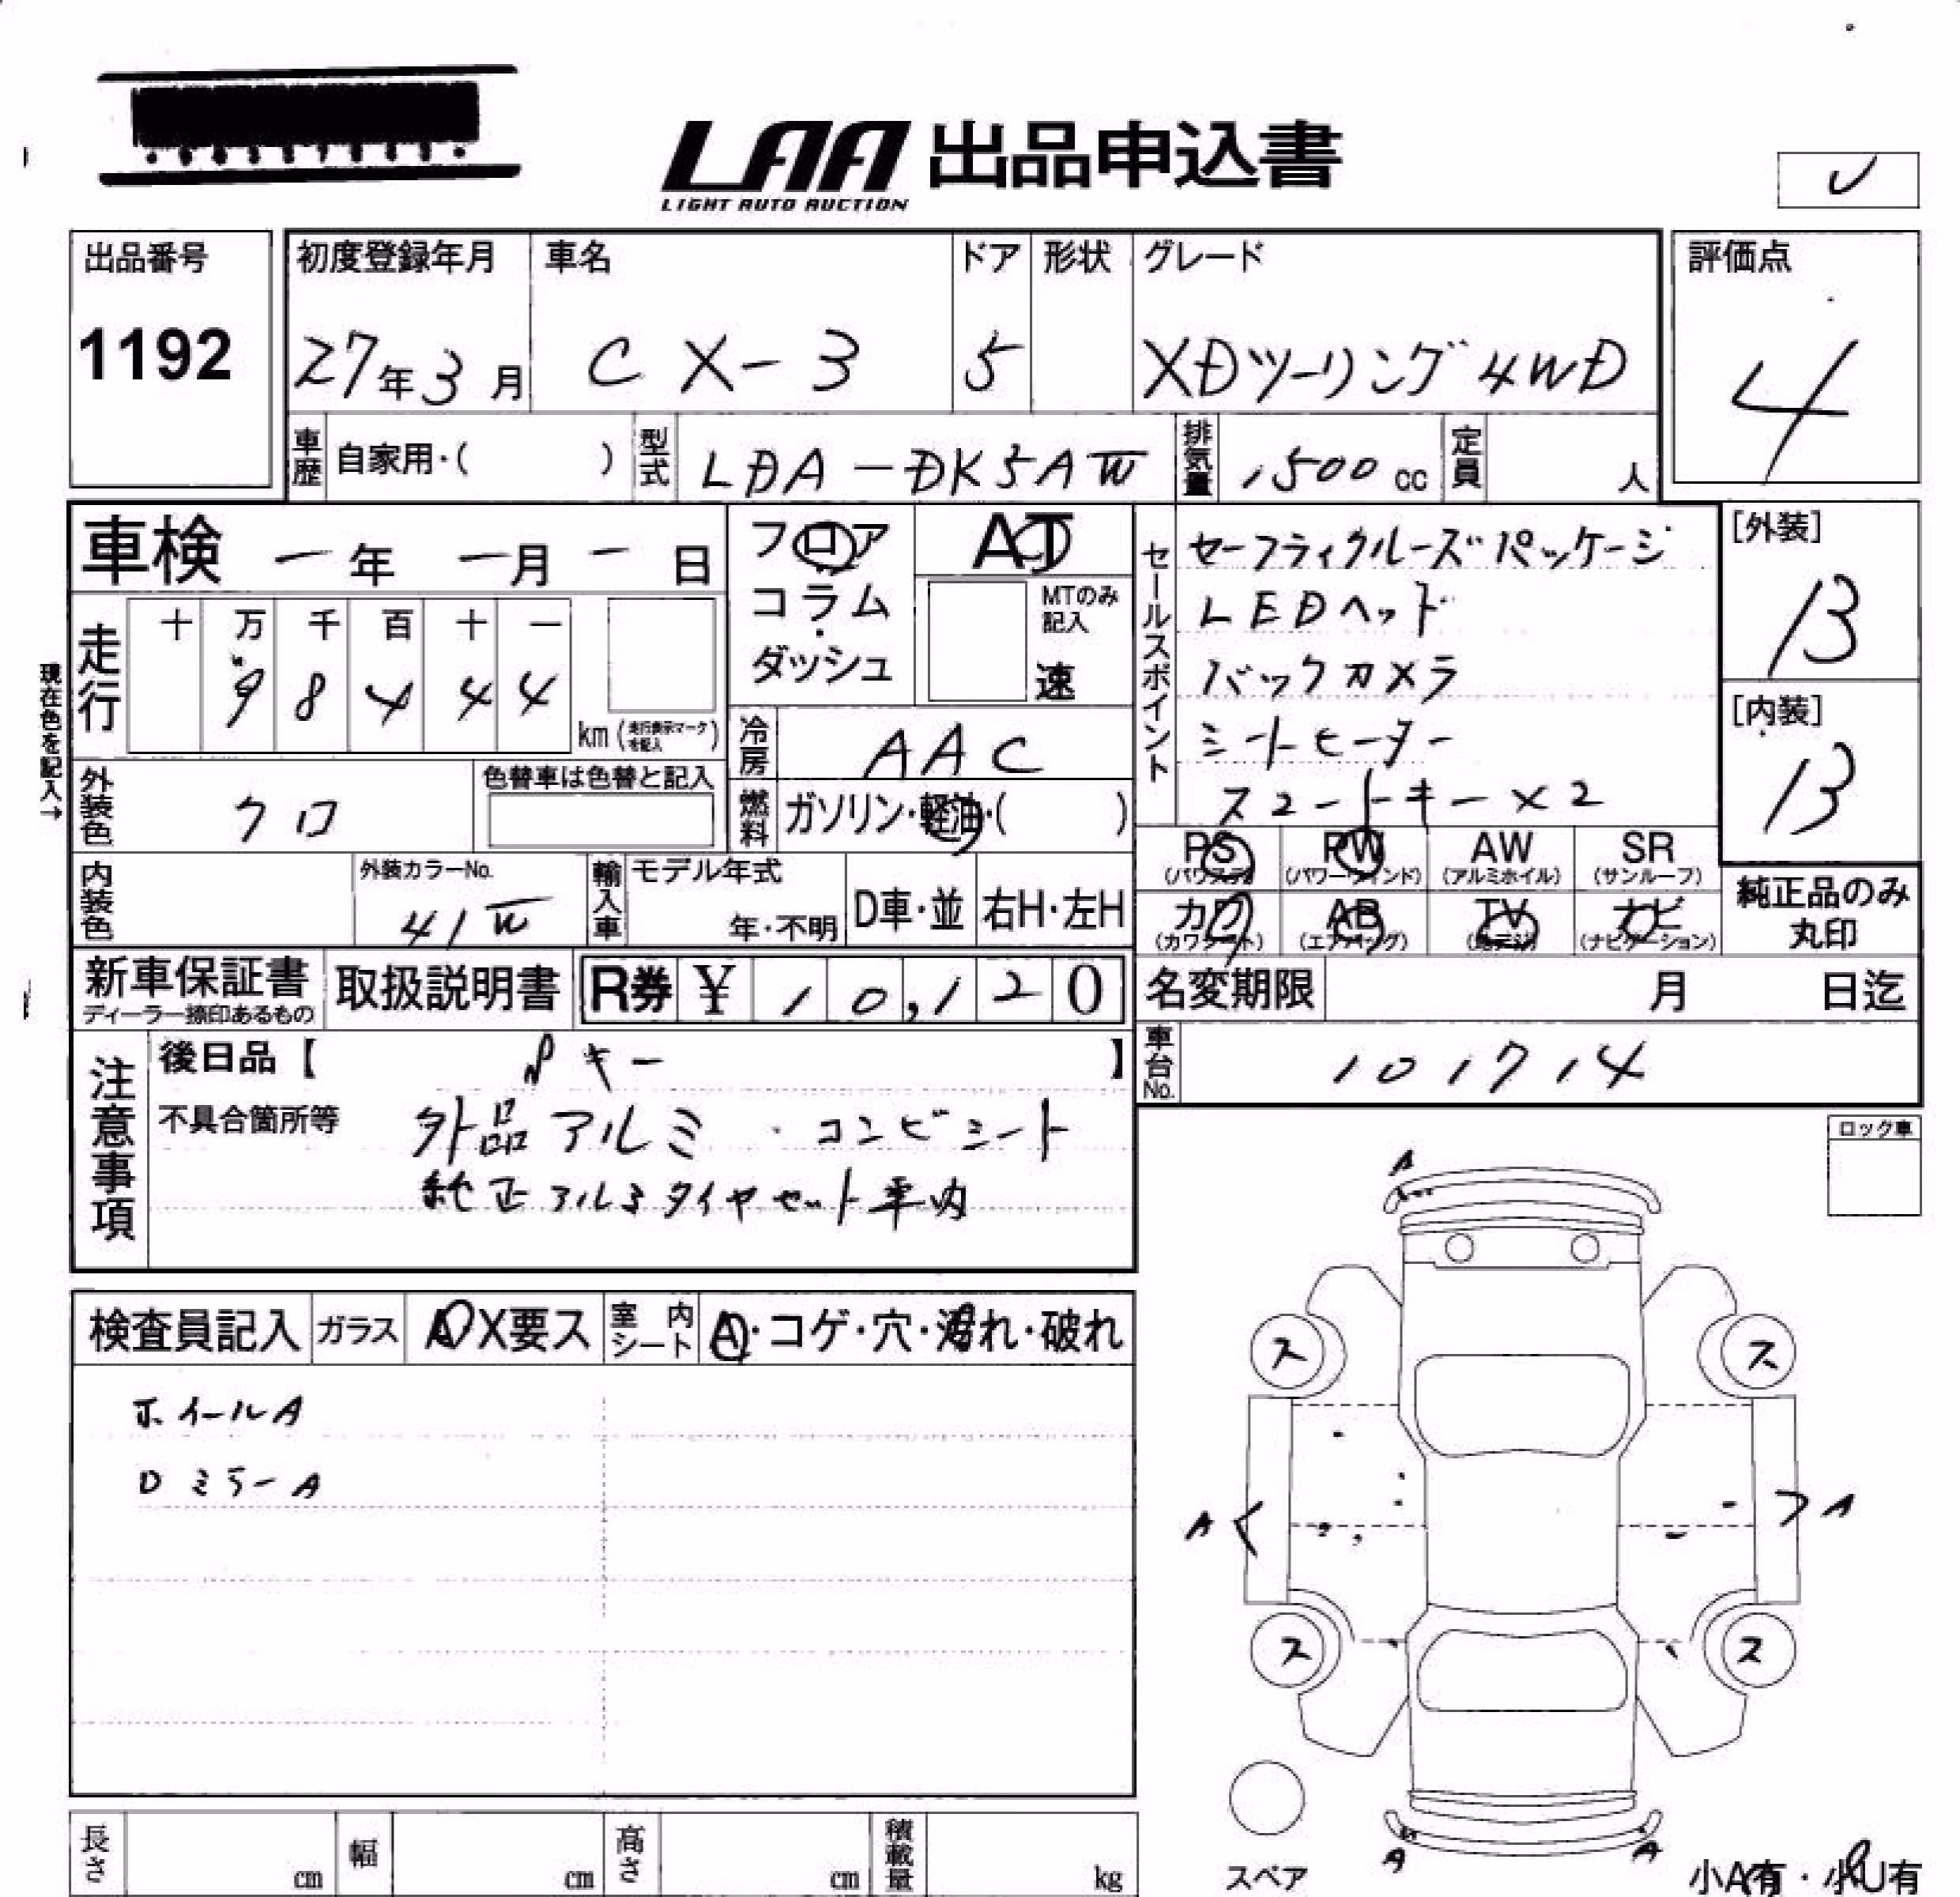 LAA 出品申込書
LIGHT AUTO AUCTION
出品番号
1192
初度登録年月
27年3月
車名
CX-3
ドア
5
形状
グレード
XDツーリング4WD
評価点
4
車歴 自家用・( )
型式 LDA-DK5AW
排気量 1500cc
定員 人
車検 -年 -月 -日
フロア
コラム
・
ダッシュ
AT
MTのみ
記入
速
セールスポイント
セーフティクルーズパッケージ
LEDヘッド
バックカメラ
シートヒーター
スマートキー×2
[外装]
B
[内装]
B
現在色を記入→
走行
十 万 千 百 十 一
9 8 4 4 4
km (走行表示マークを記入)
冷房 AAC
外装色 クロ
色替車は色替と記入
燃料 ガソリン・軽油・( )
内装色
外装カラーNo.
41W
輸入車
モデル年式
年・不明
D車・並
右H・左H
PS
(パワステ)
PW
(パワーウィンド)
AW
(アルミホイル)
SR
(サンルーフ)
カワ
(カワシート)
AB
(エアバッグ)
TV
(地デジ)
ナビ
(ナビゲーション)
純正品のみ
丸印
新車保証書
ディーラー捺印あるもの
取扱説明書
R券 ¥ 10,120
名変期限 月 日迄
車台No. 101714
注意事項
後日品【 キー 】
不具合箇所等
外品アルミ ・コンビシート
純正アルミタイヤセット車内
ロック車
検査員記入
ガラス A X要ス
室内シート A・コゲ・穴・汚れ・破れ
ホイールA
Dミラー A
A
ス ス
A A
ス ス
スペア
A A
小A有・小U有
長さ cm
幅 cm
高さ cm
積載量 kg